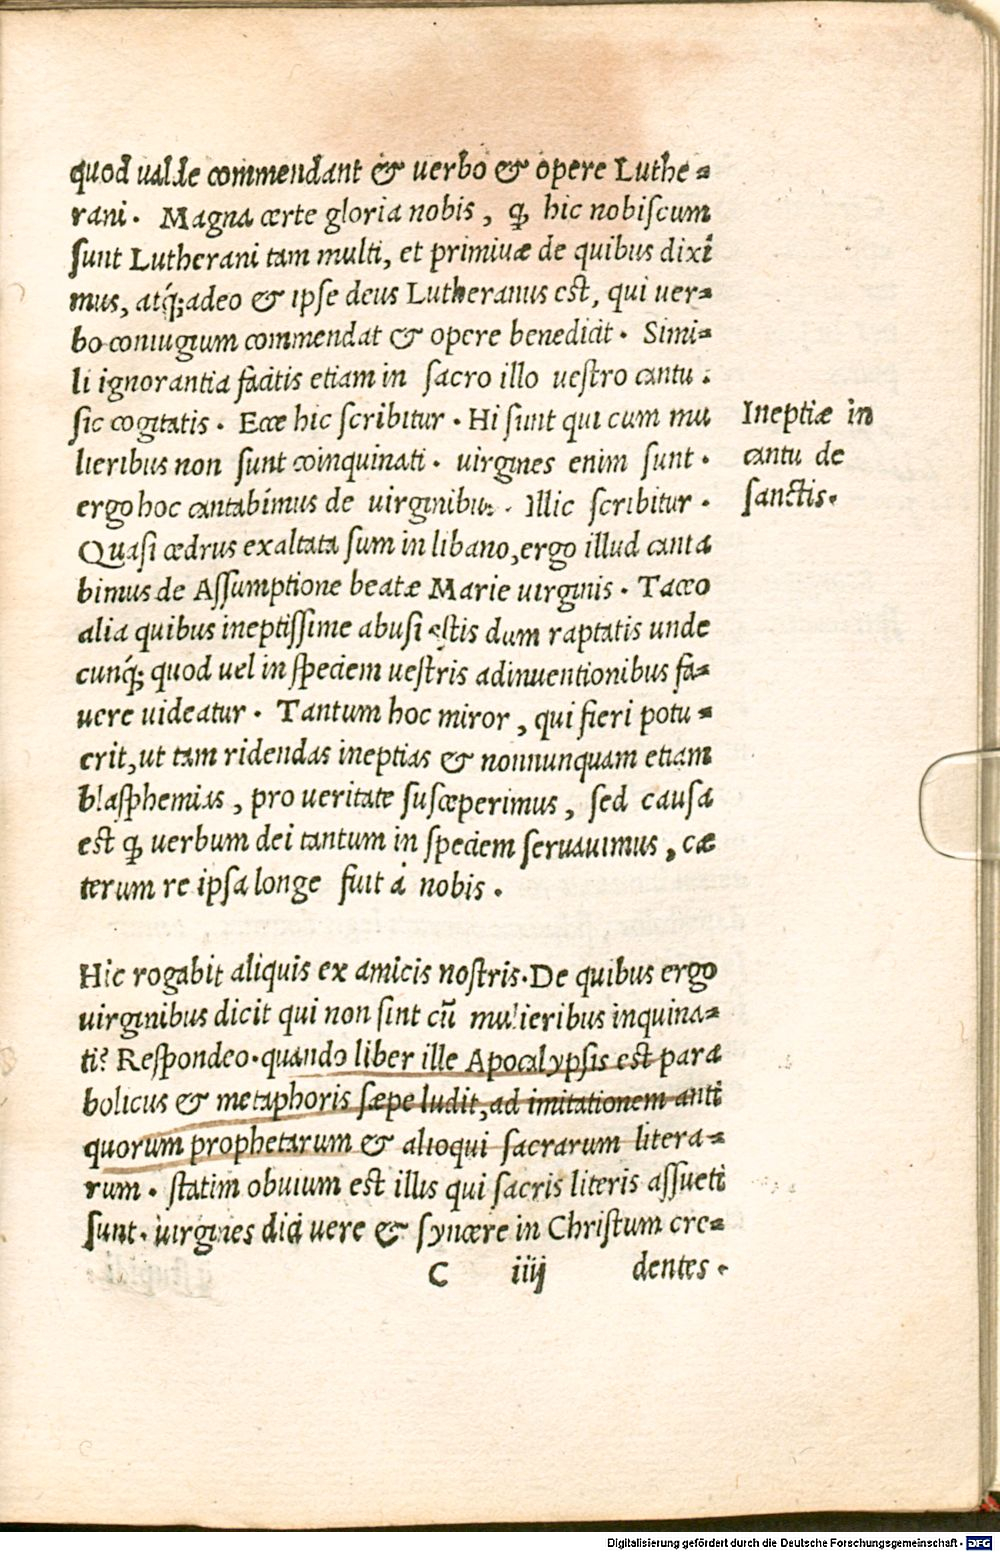 quod ualde commendant & uerbo & opere Luthe⸗
rani. Magna certe gloria nobis, ꝙ hic nobiſcum
ſunt Lutherani tam multi, et primitiuæ de quibus dixi
mus, atq́; adeo & ipſe deus Lutheranus eſt, qui uer⸗
bo coniugium commendat & opere benedicit. Simi⸗
li ignorantia facitis etiam in ſacro illo ueſtro cantu.
ſic cogitatis. Ecce hic ſcribitur. Hi ſunt qui cum mu
lieribus non ſunt coinquinati. uirgines enim ſunt.
ergo hoc cantabimus de uirginibus. Illic ſcribitur.
Quaſi cedrus exaltata ſum in libano, ergo illud canta
bimus de Aſſumptione beatæ Marie uirginis. Taceo
alia quibus ineptiſſime abuſi eſtis dum raptatis unde
cunq́; quod uel in ſpeciem ueſtris adinuentionibus fa⸗
uere uideatur. Tantum hoc miror, qui fieri potu⸗
erit, ut tam ridendas ineptias & nonnunquam etiam
blaſphemias, pro ueritate ſuſceperimus, ſed cauſa
eſt ꝙ uerbum dei tantum in ſpeciem ſeruauimus, cæ
terum re ipſa longe fuit á nobis.
Ineptiæ in
cantu de
ſanctis.
Hic rogabit aliquis ex amicis noſtris. De quibus ergo
uirginibus dicit qui non ſint cū mulieribus inquina⸗
ti? Reſpondeo. quando liber ille Apocalypſis eſt para
bolicus & metaphoris ſæpe ludit, ad imitationem anti
quorum prophetarum & alioqui ſacrarum litera⸗
rum. ſtatim obuium eſt illis qui ſacris literis aſſueti
ſunt. uirgines dici uere & ſyncere in Chriſtum cre⸗
C iiij dentes.
Digitalisierung gefördert durch die Deutsche Forschungsgemeinschaft - DFG